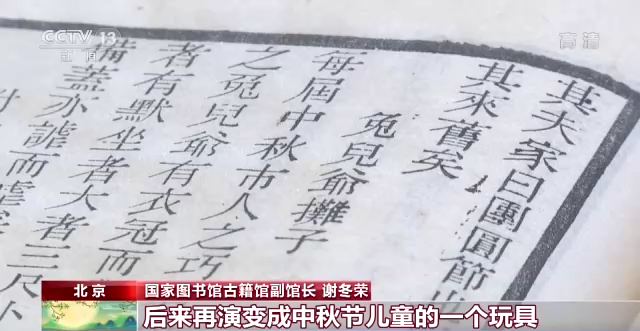 CCTV 13
新闻
高清
其夫家曰團圓節
其來舊矣
兔兒爺攤子
每屆中秋市人之巧
之兔兒爺有衣冠而
者有默坐者大者三尺小
備蓋亦謔而虐
北京
国家图书馆古籍馆副馆长 谢冬荣
后来再演变成中秋节儿童的一个玩具